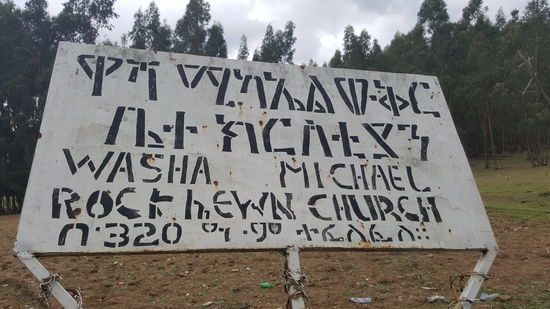 ዋሻ ሚካኤል ውቅር
ቤተ ክርስቲያን
WASHA MICHAEL
ROCK HEWN CHURCH
በ 320 ዓ.ም ተፈለፈለ።